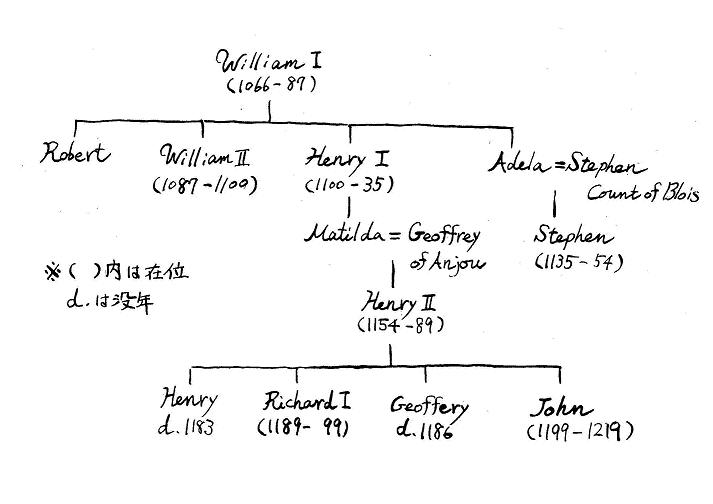 William I
(1066-87)
Robert
William II
(1087-1100)
Henry I
(1100-35)
Adela = Stephen
Count of Blois
Matilda = Geoffrey
of Anjou
Stephen
(1135-54)
※( )内は在位
d.は没年
Henry II
(1154-89)
Henry
d.1183
Richard I
(1189-99)
Geoffery
d.1186
John
(1199-1219)